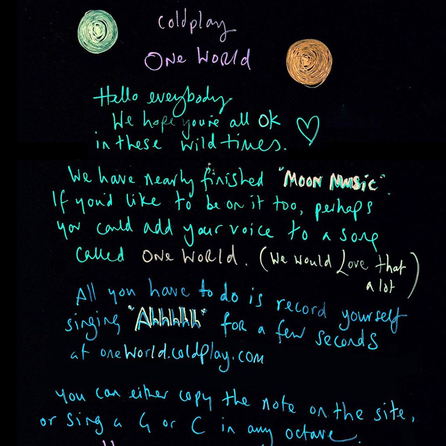 coldplay
ONE WORLD
Hallo everybody
We hope you're all OK
in these wild times.
We have nearly finished "MOON MUSIC".
If you'd like to be on it too, perhaps
you could add your voice to a song
called ONE WORLD. (We would Love that
a lot)
All you have to do is record yourself
singing "Ahhhhh" for a few seconds
at oneworld.coldplay.com
you can either copy the note on the site,
or sing a G or C in any octave.